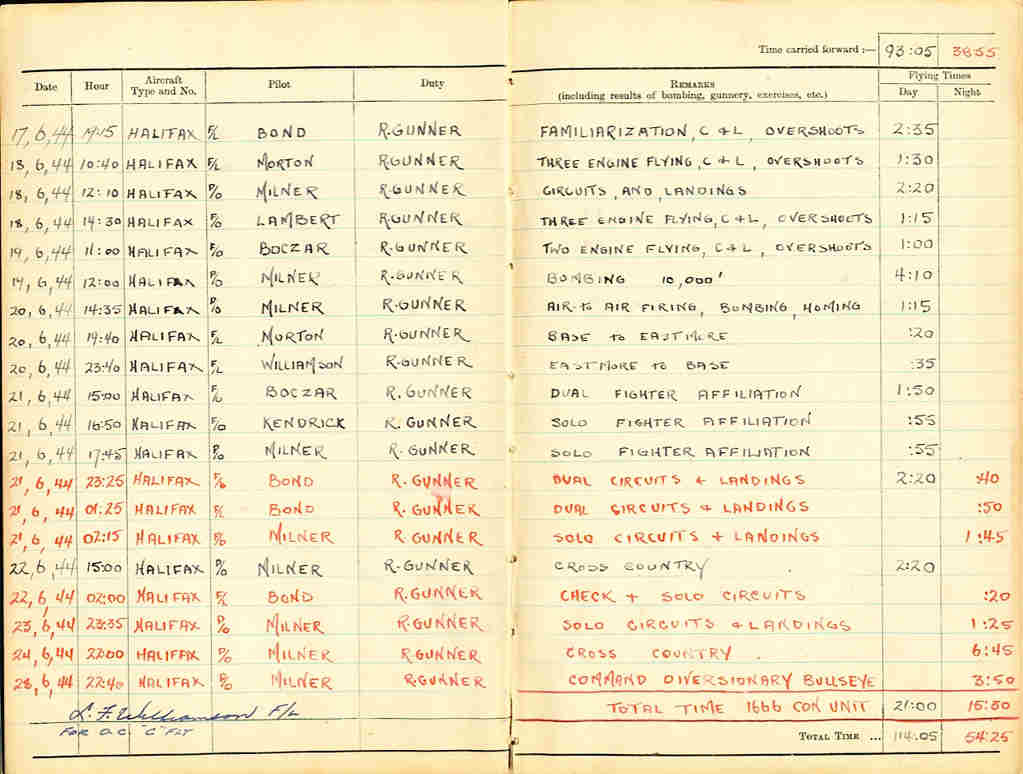 Time carried forward :— 93:05 38:55
Date Hour Aircraft Type and No. Pilot Duty REMARKS (including results of bombing, gunnery, exercises, etc.) Flying Times Day Night
17,6,44 19:15 HALIFAX F/L BOND R.GUNNER FAMILIARIZATION, C & L, OVERSHOOTS 2:35
18,6,44 10:40 HALIFAX F/L MORTON R GUNNER THREE ENGINE FLYING, C & L, OVERSHOOTS 1:30
18,6,44 12:10 HALIFAX P/O MILNER R.GUNNER CIRCUITS, AND, LANDINGS 2:20
18,6,44 14:30 HALIFAX F/O LAMBERT R.GUNNER THREE ENGINE FLYING, C & L, OVERSHOOTS 1:15
19,6,44 11:00 HALIFAX F/O BOCZAR R.GUNNER TWO ENGINE FLYING, C & L, OVERSHOOTS 1:00
19,6,44 12:00 HALIFAX P/O MILNER R.GUNNER BOMBING 10,000' 4:10
20,6,44 14:35 HALIFAX P/O MILNER R.GUNNER AIR to AIR FIRING, BOMBING, HOMING 1:15
20,6,44 19:40 HALIFAX F/L MORTON R.GUNNER BASE to EASTMORE :20
20,6,44 23:40 HALIFAX F/L WILLIAMSON R.GUNNER EASTMORE to BASE :35
21,6,44 15:00 HALIFAX F/O BOCZAR R.GUNNER DUAL FIGHTER AFFILIATION 1:50
21,6,44 16:50 HALIFAX F/O KENDRICK R.GUNNER SOLO FIGHTER AFFILIATION :55
21,6,44 17:45 HALIFAX P/O MILNER R.GUNNER SOLO FIGHTER AFFILIATION :55
21,6,44 23:25 HALIFAX BOND R.GUNNER DUAL CIRCUITS & LANDINGS 2:20 :40
21,6,44 01:25 HALIFAX F/L BOND R.GUNNER DUAL CIRCUITS & LANDINGS :50
21,6,44 02:15 HALIFAX P/O MILNER R.GUNNER SOLO CIRCUITS & LANDINGS 1:45
22,6,44 15:00 HALIFAX P/O MILNER R.GUNNER CROSS COUNTRY 2:20
22,6,44 02:00 HALIFAX F/L BOND R.GUNNER CHECK & SOLO CIRCUITS :20
23,6,44 23:35 HALIFAX P/O MILNER R.GUNNER SOLO CIRCUITS & LANDINGS 1:25
24,6,44 22:00 HALIFAX P/O MILNER R.GUNNER CROSS COUNTRY. 6:45
28,6,44 22:40 HALIFAX P/O MILNER R.GUNNER COMMAND DIVERSIONARY BULLSEYE 3:50
L.F. Williamson F/L TOTAL TIME 1666 CON UNIT 21:00 15:30
FOR O.C "C" FLT TOTAL TIME ... 114:05 54:25